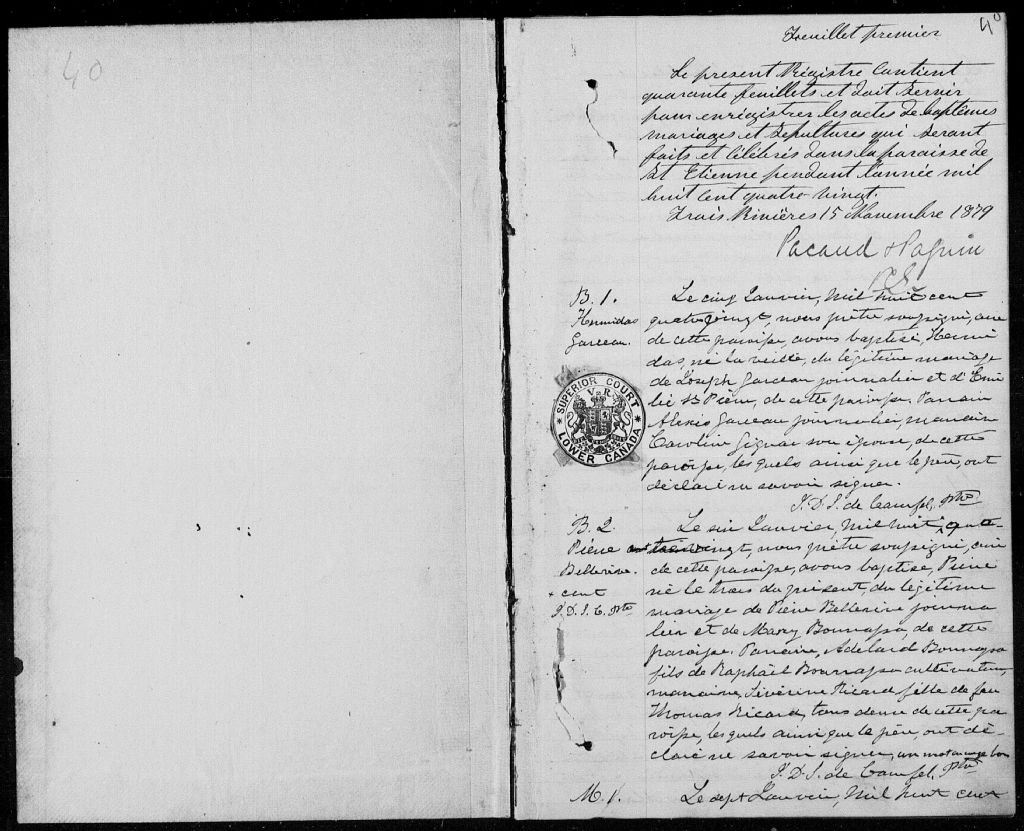 40
40
Feuillet premier
Le present Régistre Contient
quarante feuillets et doit servir
pour enrégistrer les actes de baptêmes
mariages et Sépultures qui seront
faits et Célébrés dans la paroisse de
St Etienne pendant l'année mil
huit cent quatre vingt.
Trois Rivières 15 Novembre 1879
Pacaud & Paquin
B. 1.
Hermidas
Garceau.
Le cinq Janvier, Mil huit cent
quatre vingt, nous prêtre soussigné, curé
de cette paroisse, avons baptisé, Hermi
das, né la veille, du légitime mariage
de Joseph Garceau journalier et d'Emi
lie St Pierre, de cette paroisse. Parrain
Alexis Garceau journalier, marraine
Caroline Gignac son épouse, de cette
paroisse, les quels ainsi que le père, ont
déclaré ne savoir signer.
J. D. S. de Ptre
SUPERIOR COURT
V R
LOWER CANADA
B. 2.
Pierre
Bellerive.
+ cent
J. D. S. C. Ptre
Le six Janvier, Mil huit + quatre
vingt, nous prêtre soussigné, curé
de cette paroisse, avons baptisé, Pierre
né le trois du présent, du légitime
mariage de Pierre Bellerive journa
lier et de Mary Bournassa, de cette
paroisse. Parrain, Adelard Bournassa
fils de Raphaël Bournassa cultivateur,
marraine, Séverine Ricard fille de feu
Thomas Ricard, tous deux de cette pa
roisse, les quels ainsi que le père, ont dé-
claré ne savoir signer, un mot en marge bon
J. D. S. de Ptre
M. 1.
Le sept Janvier, Mil huit cent